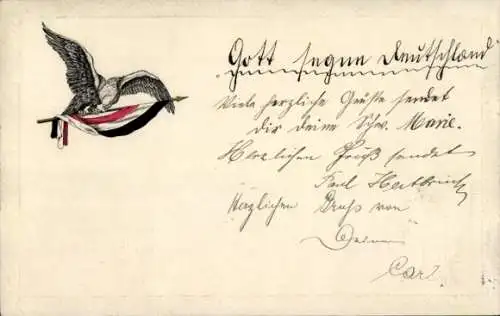 Gott segne Deutschland
Viele herzliche Grüße sendet
dir deine Schw. Marie.
Herzlichen Gruß sendet
Paul
Herzlichen Gruß von
Deinem
Carl